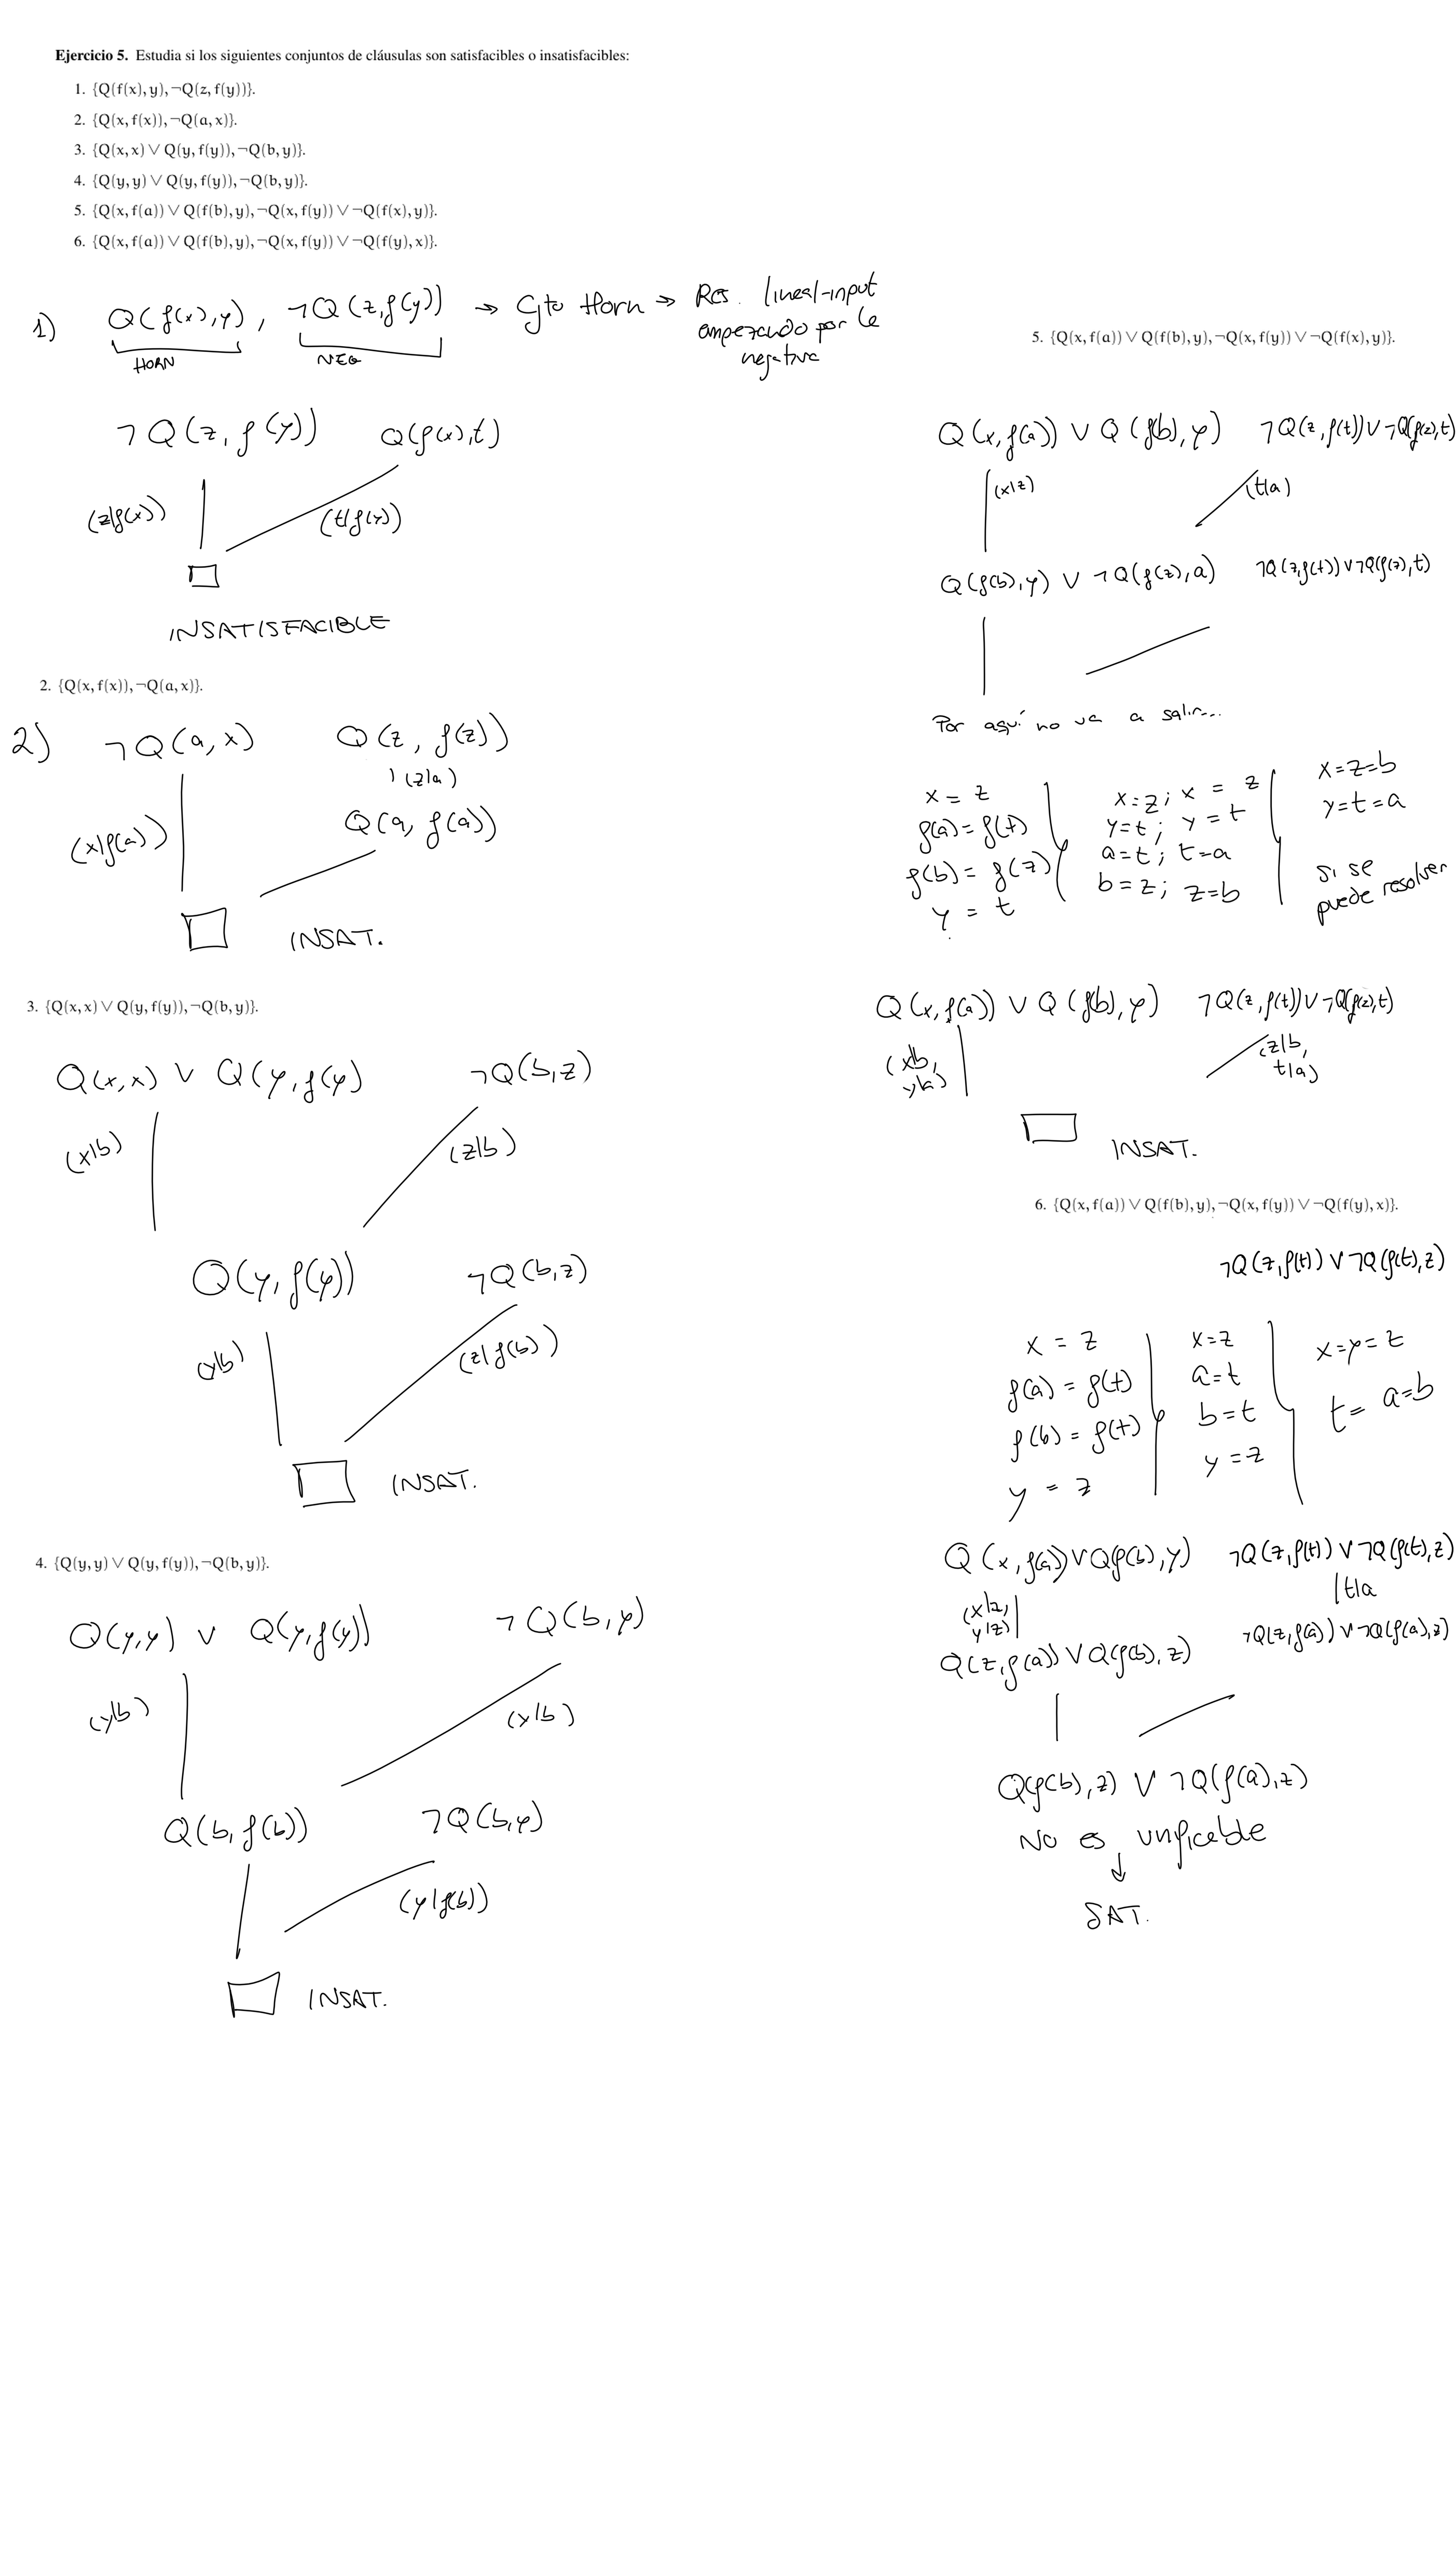 Ejercicio 5. Estudia si los siguientes conjuntos de cláusulas son satisfacibles o insatisfacibles:
1. {Q(f(x),y),¬Q(z,f(y))}.
2. {Q(x,f(x)),¬Q(a,x)}.
3. {Q(x,x)∨Q(y,f(y)),¬Q(b,y)}.
4. {Q(y,y)∨Q(y,f(y)),¬Q(b,y)}.
5. {Q(x,f(a))∨Q(f(b),y),¬Q(x,f(y))∨¬Q(f(x),y)}.
6. {Q(x,f(a))∨Q(f(b),y),¬Q(x,f(y))∨¬Q(f(y),x)}.
1) Q(f(x),y), ¬Q(z,f(y)) → Cjto Horn → Res. lineal-input
empezando por la
negativa
HORN NEG
¬Q(z,f(y)) Q(f(x),t)
(z|f(x)) (t|f(y))
□
INSATISFACIBLE
2. {Q(x,f(x)),¬Q(a,x)}.
2) ¬Q(a,x) Q(z,f(z))
(z|a)
(x|f(a)) Q(a,f(a))
□ INSAT.
3. {Q(x,x)∨Q(y,f(y)),¬Q(b,y)}.
Q(x,x) ∨ Q(y,f(y) ¬Q(b,z)
(x|b) (z|b)
Q(y,f(y)) ¬Q(b,z)
(y|b) (z|f(b))
□ INSAT.
4. {Q(y,y)∨Q(y,f(y)),¬Q(b,y)}.
Q(y,y) ∨ Q(y,f(y)) ¬Q(b,y)
(y|b) (y|b)
Q(b,f(b)) ¬Q(b,y)
(y|f(b))
□ INSAT.
5. {Q(x,f(a))∨Q(f(b),y),¬Q(x,f(y))∨¬Q(f(x),y)}.
Q(x,f(a)) ∨ Q(f(b),y) ¬Q(z,f(t))∨¬Q(f(z),t)
(x|z) (t|a)
Q(f(b),y) ∨ ¬Q(f(z),a) ¬Q(z,f(t))∨¬Q(f(z),t)
Por aquí no va a salir...
x = z
f(a) = f(t)
f(b) = f(z)
y = t
x=z; x = z
y=t; y = t
a=t; t=a
b=z; z=b
x=z=b
y=t=a
Si se
puede resolver
Q(x,f(a)) ∨ Q(f(b),y) ¬Q(z,f(t))∨¬Q(f(z),t)
(x|b,
y|a)
(z|b,
t|a)
□ INSAT.
6. {Q(x,f(a))∨Q(f(b),y),¬Q(x,f(y))∨¬Q(f(y),x)}.
¬Q(z,f(t))∨¬Q(f(t),z)
x = z
f(a) = f(t)
f(b) = f(t)
y = z
x=z
a=t
b=t
y=z
x=y=z
t= a=b
Q(x,f(a))∨Q(f(b),y) ¬Q(z,f(t))∨¬Q(f(t),z)
(x|z,
y|z)
t|a
Q(z,f(a))∨Q(f(b),z) ¬Q(z,f(a))∨¬Q(f(a),z)
Q(f(b),z) ∨ ¬Q(f(a),z)
No es unificable
↓
SAT.